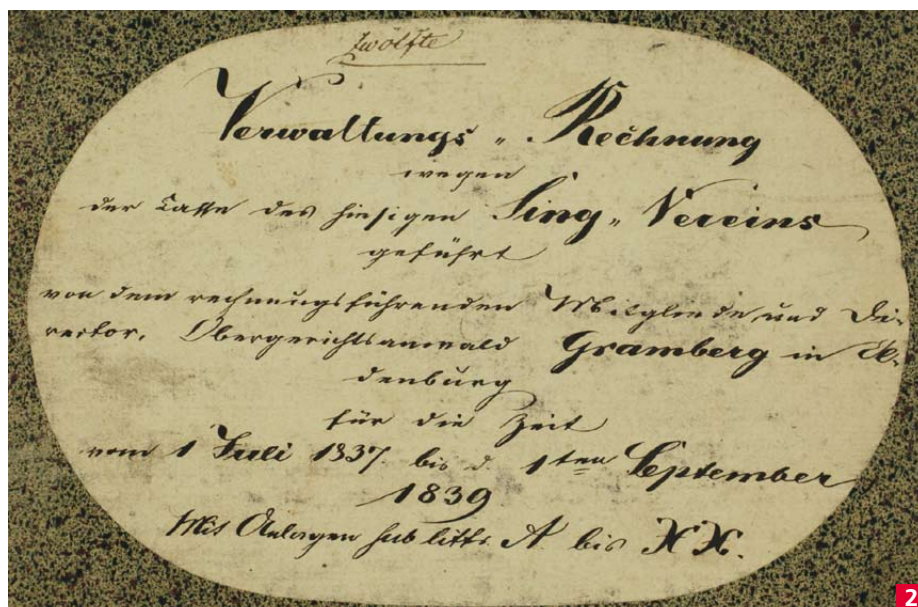 Zwölfte
Verwaltungs „ Rechnung
wegen
der Casse des hiesigen Sing „ Vereins
geführt
von dem rechnungsführenden Mitgliede und Di-
rector, Obergerichtsanwald Gramberg in Ol-
denburg
für die Zeit
vom 1 Juli 1837 bis d. 1ten September
1839
Mit Anlagen sub litts. A. bis XX.
2